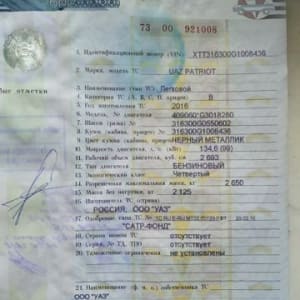 73 00 921008
1. Идентификационный номер (VIN) XTT316300G1006436
2. Марка, модель ТС UAZ PATRIOT
3. Наименование (тип ТС) Легковой
4. Категория ТС (А, В, С, D, прицеп) B
5. Год изготовления ТС 2016
6. Модель, № двигателя 409060*G3018280
7. Шасси (рама) № 316300G0550602
8. Кузов (кабина, прицеп) № 316300G1006436
9. Цвет кузова (кабины, прицепа) ЧЕРНЫЙ МЕТАЛЛИК
10. Мощность двигателя, л. с. (кВт) 134.6 (99)
11. Рабочий объем двигателя, куб. см 2 693
12. Тип двигателя БЕНЗИНОВЫЙ
13. Экологический класс Четвертый
14. Разрешенная максимальная масса, кг 2 650
15. Масса без нагрузки, кг 2 125
16. Изготовитель ТС (страна)
РОССИЯ, ООО "УАЗ"
17. Одобрение типа ТС №
"САТР-ФОНД"
18. Страна вывоза ТС отсутствует
19. Серия, № ТД, ТПО отсутствует
20. Таможенные ограничения не установлены
21. Наименование (ф. и. о.) собственника ТС
ООО "УАЗ"